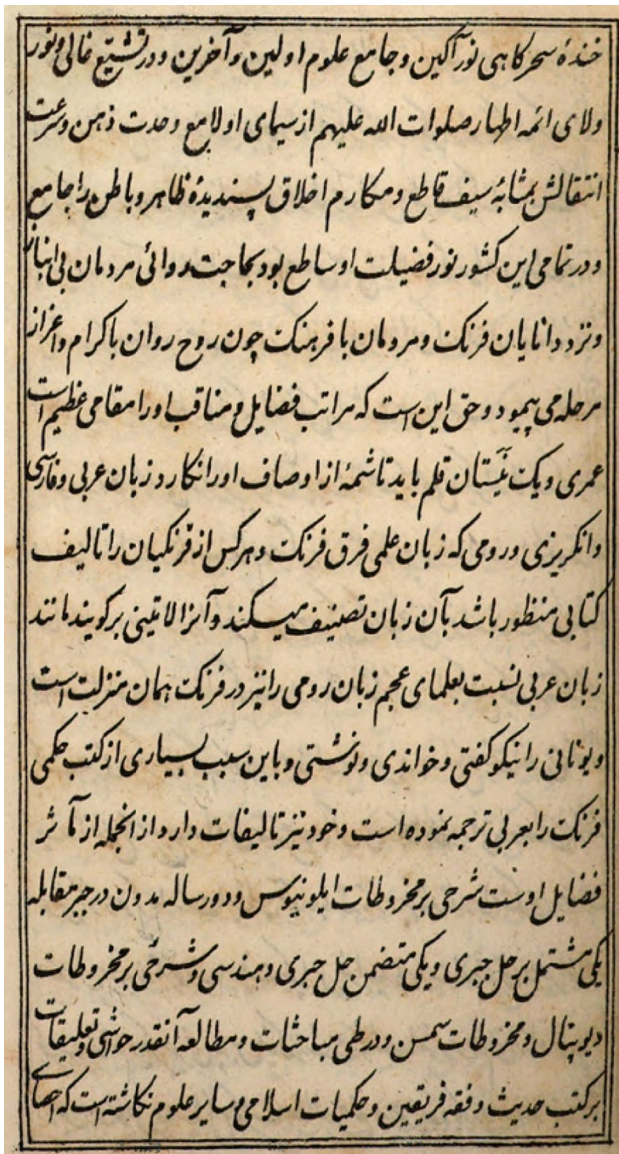 خندهٔ سحرکاهی نورآکین و جامع علوم اولین و آخرین و در تشیع غالی و نور
ولای ائمه اطهار صلوات الله علیهم از سیمای او لامع وحدت ذهن و سرعت
انتقالش بمثابهٔ سیف قاطع و مکارم اخلاق پسندیدهٔ ظاهر و باطن را جامع
و در تمامی این کشور نور فضیلت او ساطع بود بحاجت روائی مردمان بی انباز
و نزد دانایان فرنک و مردمان با فرهنک چون روح روان باکرام و اعزاز
مرحله می پیمود و حق این است که مراتب فضایل و مناقب او را مقامی عظیم است
عمری و یک نیستان قلم باید تا شمهٔ از اوصاف او را نکارد زبان عربی و فارسی
و انکریزی و رومی که زبان علمی فرق فرنک و هرکس از فرنکیان را تالیف
کتابی منظور باشد بآن زبان تصنیف میکند و آنرا لاتینی برکویند مانند
زبان عربی نسبت بعلمای عجم زبان رومی را نیز در فرنک همان منزلت است
و یونانی را نیکو کفتی و خواندی و نوشتی و باین سبب بسیاری از کتب حکمی
فرنک را بعربی ترجمه نموده است و خود نیز تالیفات دارد از انجمله از مآثر
فضایل اوست شرحی بر مخروطات ایلونیوس و دو رساله مدون در جبر مقابله
یکی مشتمل بر حل جبری و یکی متضمن حل جبری و هندسی و شرحی بر مخروطات
دیوپتال و مخروطات سمسن و در طی مباحثات و مطالعه آنقدر حواشی و تعلیقات
بر کتب حدیث و فقه فریقین و حکمیات اسلامی و سایر علوم نکاشته است که احصای